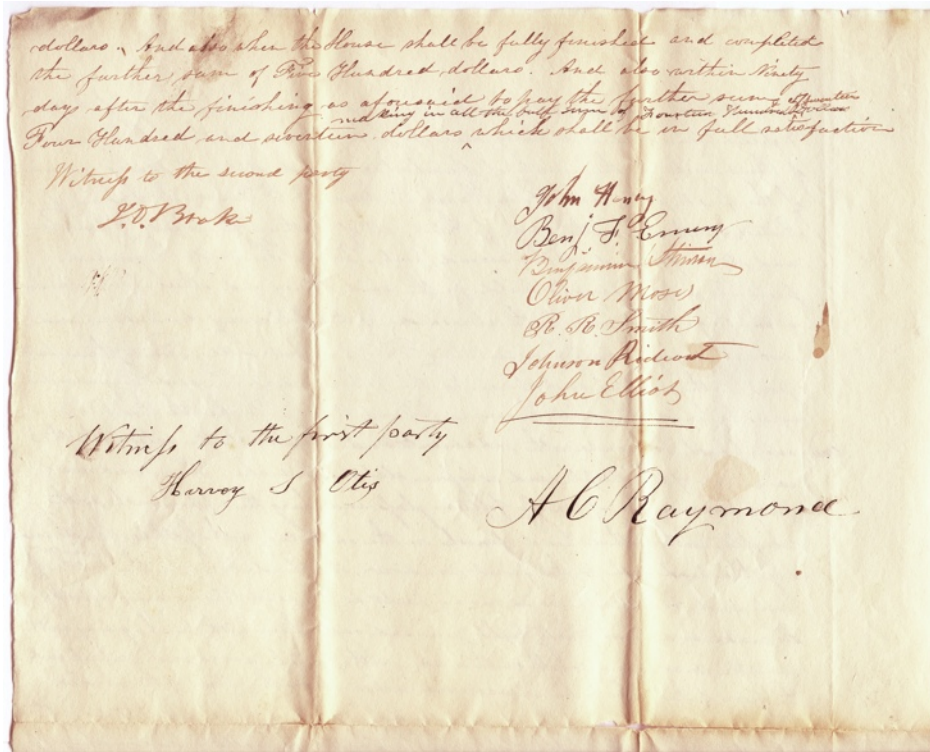 dollars. And also when the House shall be fully finished and completed
the further sum of Five Hundred dollars. And also within Ninety
days after the finishing as aforesaid to pay the further sum of
making in all the full sum of Fourteen Hundred
Four Hundred and seventeen dollars ^ which shall be in full satisfaction
Witness to the second party
John Henry
Benj F. Emery
Benjamin Stinson
Oliver Moses
R. R. Smith
Johnson Rideout
John Elliot
Witness to the first party
Harvey S Otis
A C Raymond